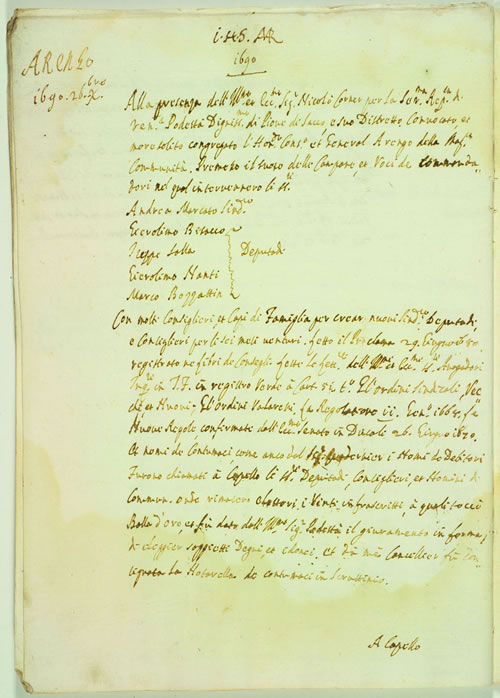 1690
ARENGO
1690. 26. Xbre
Alla presenza dell' Illmo et Eccmo Sigr Nicolò Corner per la Serma Repca di
Vena Podestà Dignismo di Piove di Sacco e suo Distretto Convocato, et
more solito congregato l' Hondo Consº et General Arengo della Magca
Communità. Premesso il suono delle Campane, et Voci de commanda
dori nel qual intervennero li ssti
Andrea Marcato Sindco
Gierolimo Bitacco
Iseppe Salla
Deputadi
Gierolimo Nanti
Marco Bozzattin
Con molti Consiglieri, et Capi di Famiglia per crear nuovi Sindco Deputadi,
e Consiglieri per li sei mesi venturi. fatto il Proclama 29. Giugno 1680
registrato ne libri de Consegli. fatte le dell' Illmi et Eccmi Ssri
in registro Verde à Cart. 51. tº. Et l' ordini Sindicali, Vec
chi, et Nuovi. Et l' ordini Valaressi, fu Regolatore 11. 1665. fu
Nuove Regole confermate dall' Eccmo Senato in Ducali 26. Giugno 1670.
Et nomi de Contumaci come anco del i Homi de Debitori
Furono chiamati à Capello li ssti Deputadi, Conseglieri, et Homini di
Commun. onde rimasero Elettori, i Vinti, infrascritti, à quali toccò
Balla d' oro, et fù dato dall' Illmo Sigr Podestà il giuramento in forma,
di elegger soggietti Degni, et idonei, et Da me Cancellier fù con
signata la Notarella de contumaci in Scrutinio.
A Capello